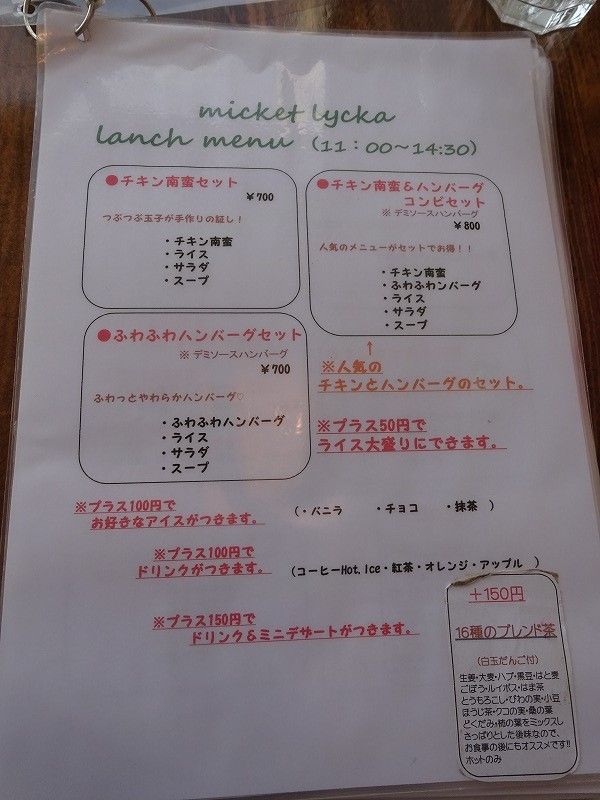 micket lycka
lanch menu (11：00～14:30)
●チキン南蛮セット
￥700
つぶつぶ玉子が手作りの証し！
・チキン南蛮
・ライス
・サラダ
・スープ
●チキン南蛮＆ハンバーグ
コンビセット
※ デミソースハンバーグ
￥800
人気のメニューがセットでお得！！
・チキン南蛮
・ふわふわハンバーグ
・ライス
・サラダ
・スープ
●ふわふわハンバーグセット
※ デミソースハンバーグ
￥700
ふわっとやわらかハンバーグ♡
・ふわふわハンバーグ
・ライス
・サラダ
・スープ
↑
※人気の
チキンとハンバーグのセット。
※プラス50円で
ライス大盛りにできます。
※プラス100円で
お好きなアイスがつきます。
（・バニラ ・チョコ ・抹茶 ）
※プラス100円で
ドリンクがつきます。
（コーヒーHot.Ice・紅茶・オレンジ・アップル ）
※プラス150円で
ドリンク＆ミニデザートがつきます。
＋150円
16種のブレンド茶
（白玉だんご付）
生姜・大麦・ハブ・黒豆・はと麦
ごぼう・ルイボス・はま茶
とうもろこし・びわの実・小豆
ほうじ茶・クコの実・桑の葉
どくだみ・柿の葉をミックスし
さっぱりとした後味なので、
お食事の後にもオススメです!!
ホットのみ